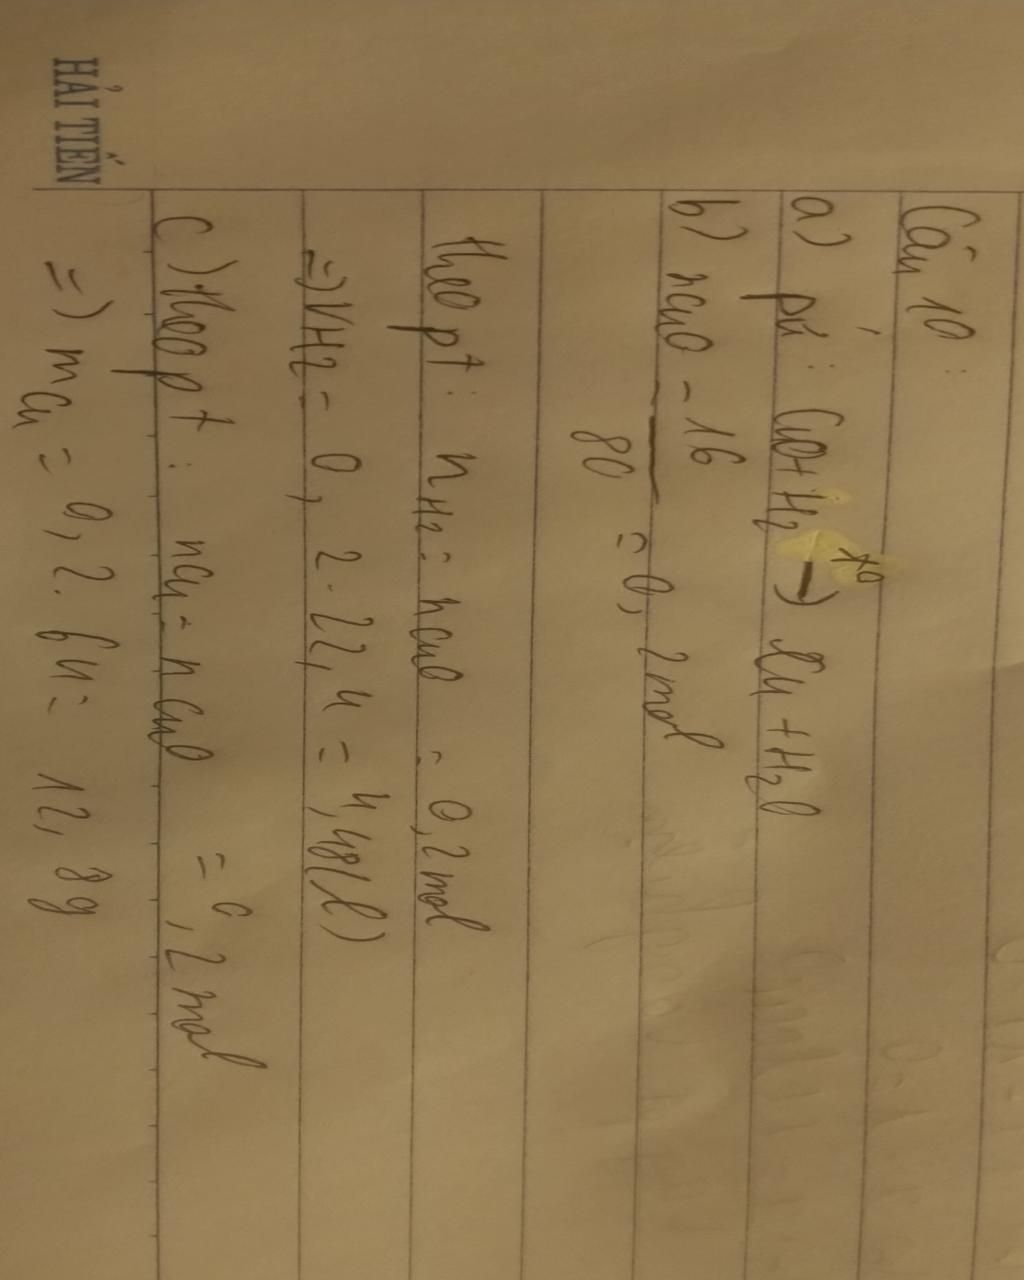 HẢI TIẾN
Câu 10:
a) pứ: CuO + H2 →t° Cu + H2O
b) nCuO = 16/80 = 0,2 mol
theo pt: nH2 = nCuO = 0,2 mol
=> VH2 = 0,2.22,4 = 4,48(l)
c) theo pt: nCu = nCuO = 0,2 mol
=> mCu = 0,2.64 = 12,8g